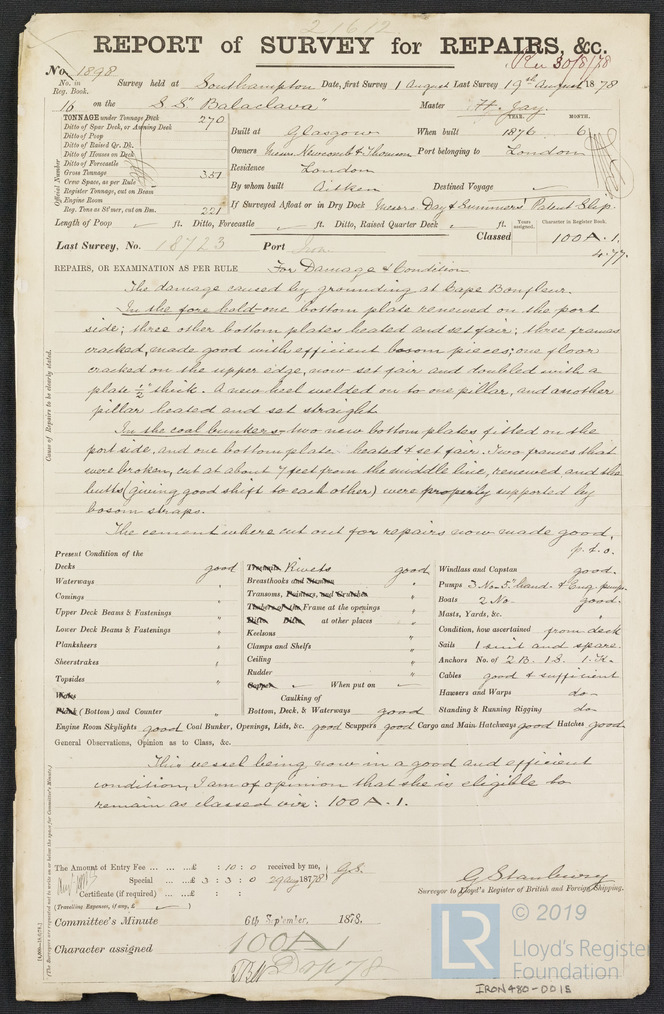 21612
REPORT of SURVEY for REPAIRS, &c.
Rec 30/8/78
No. 1898
No. in Reg. Book. Survey held at Southampton Date, first Survey 1 August Last Survey 19th August 1878
16 on the S S "Balaclava" Master H. Jay.
TONNAGE under Tonnage Deck 270
Ditto of Spar Deck, or Awning Deck
Ditto of Poop
Ditto of Raised Qr. Dk.
Ditto of Houses on Deck
Ditto of Forecastle
Gross Tonnage 351
Crew Space, as per Rule
Register Tonnage, cut on Beam
Engine Room
Reg. Tons as St'mer, cut on Bm. 221
Official Number
YEAR. MONTH.
Built at Glasgow When built 1876 6
Owners Messrs Newcomb & Thomson Port belonging to London
Residence London
By whom built Aitken Destined Voyage ✓
If Surveyed Afloat or in Dry Dock Messrs Day & Summers' Patent Slip.
Length of Poop ✓ ft. Ditto, Forecastle ✓ ft. Ditto, Raised Quarter Deck ✓ ft.
Years assigned. Character in Register Book.
Last Survey, No. 18723 Port Classed 100A.1.
4.77.
REPAIRS, OR EXAMINATION AS PER RULE For Damage & Condition
Cause of Repairs to be clearly stated.
The damage caused by grounding at Cape Bonfleur.
In the fore hold - one bottom plate renewed on the port
side; three other bottom plates heated and set fair; three frames
cracked, made good with efficient bosom pieces; one floor
cracked on the upper edge, now set fair and doubled with a
plate ½" thick. A new heel welded on to one pillar, and another
pillar heated and set straight
In the coal bunkers - two new bottom plates fitted on the
port side, and one bottom plate heated & set fair. Two frames that
were broken, cut at about 7 feet from the middle line, renewed and the
butts (giving good shift to each other) were properly supported by
bosom straps.
The cement where cut out for repairs now made good.
p.t.o.
Present Condition of the
Decks good
Waterways "
Comings "
Upper Deck Beams & Fastenings "
Lower Deck Beams & Fastenings "
Planksheers "
Sheerstrakes "
Topsides "
Wales
Plank (Bottom) and Counter "
Treenails Rivets good
Breasthooks and Stemson "
Transoms, Pointers, and Crutches "
Timbers of the Frame at the openings "
Ditto Ditto at other places "
Keelsons "
Clamps and Shelfs "
Ceiling "
Rudder "
Copper ✓ When put on ✓
Caulking of
Bottom, Deck, & Waterways good
Windlass and Capstan good.
Pumps 3 No. 5" hand. & Eng. pumps.
Boats 2 No good.
Masts, Yards, &c. "
Condition, how ascertained from deck
Sails 1 suit and spare.
Anchors No. of 2 B. 1 S. 1. K.
Cables good & sufficient
Hawsers and Warps do
Standing & Running Rigging do
Engine Room Skylights good Coal Bunker, Openings, Lids, &c. good Scuppers good Cargo and Main Hatchways good Hatches good
General Observations, Opinion as to Class, &c.
This vessel being now in a good and efficient
condition, I am of opinion that she is eligible to
remain as classed viz: 100 A. 1.
The Amount of Entry Fee ... ... ...£ : 10 : 0 received by me,
Special ... ...£ 3 : 3 : 0 29 Aug 1878 G.S.
Certificate (if required) ... ...£ : :
(Travelling Expenses, if any, £ ✓ )
G Stanbury
Surveyor to Lloyd's Register of British and Foreign Shipping.
Committee's Minute 6th September, 1878.
Character assigned 100A1
(The Surveyors are requested not to write on or below the space for Committee's Minute.)
© 2019
LR Lloyd's Register
Foundation
IRON480-0018